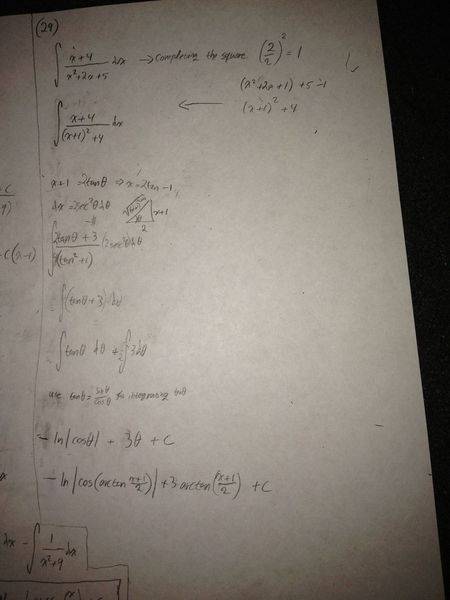 (29)
∫ x+4 / x²+2x+5 dx → Completing the square (2/2)² = 1
(x²+2x+1) +5-1
∫ x+4 / (x+1)²+4 dx ← (x+1)²+4
x+1 = 2tanθ ⇒ x=2tan-1
dx = 2sec²θ dθ
x+1
2
∫ 2tanθ+3 / 4(tan²+1) (2sec²θ) dθ
∫ (tanθ+3) dθ
∫ tanθ dθ + ∫ 3dθ
use tanθ = sinθ/cosθ for integrating tanθ
- ln|cosθ| + 3θ + C
- ln|cos(arctan x+1/2)| + 3 arctan(x+1/2) + C
+ C
C(x-1)
dx - ∫ 1/x²+9 dx